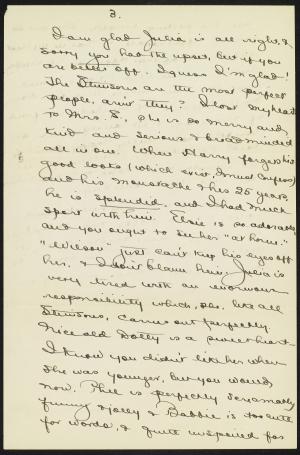 3.
I am glad Julia is all right, &
sorry you had the upset, but if you
are better off. I guess I'm glad!
The Stimsons are the most perfect
people, aren't they? I lost my heart
to Mrs. S., she is so merry and
kind and serious & broadminded
all in one. When Harry forgets his
good looks (which exist, I must confess)
and his moustache & his 25 years
he is splendid, and I had much
sport with him. Elsie is so adorable
and you ought to see her "at home."
"Wilson" just can't keep his eyes off
her, & I don't blame him. Julia is
very tired with an enormous
responsibility which, she, like all
Stimsons, carries out perfectly.
Nice old Dotty is a sweetheart
I know you didn't like her when
she was younger, but you would
now. Phil is perfectly screamably
funny & jolly & Bobbie is too cute
for words, & quite unspoiled for